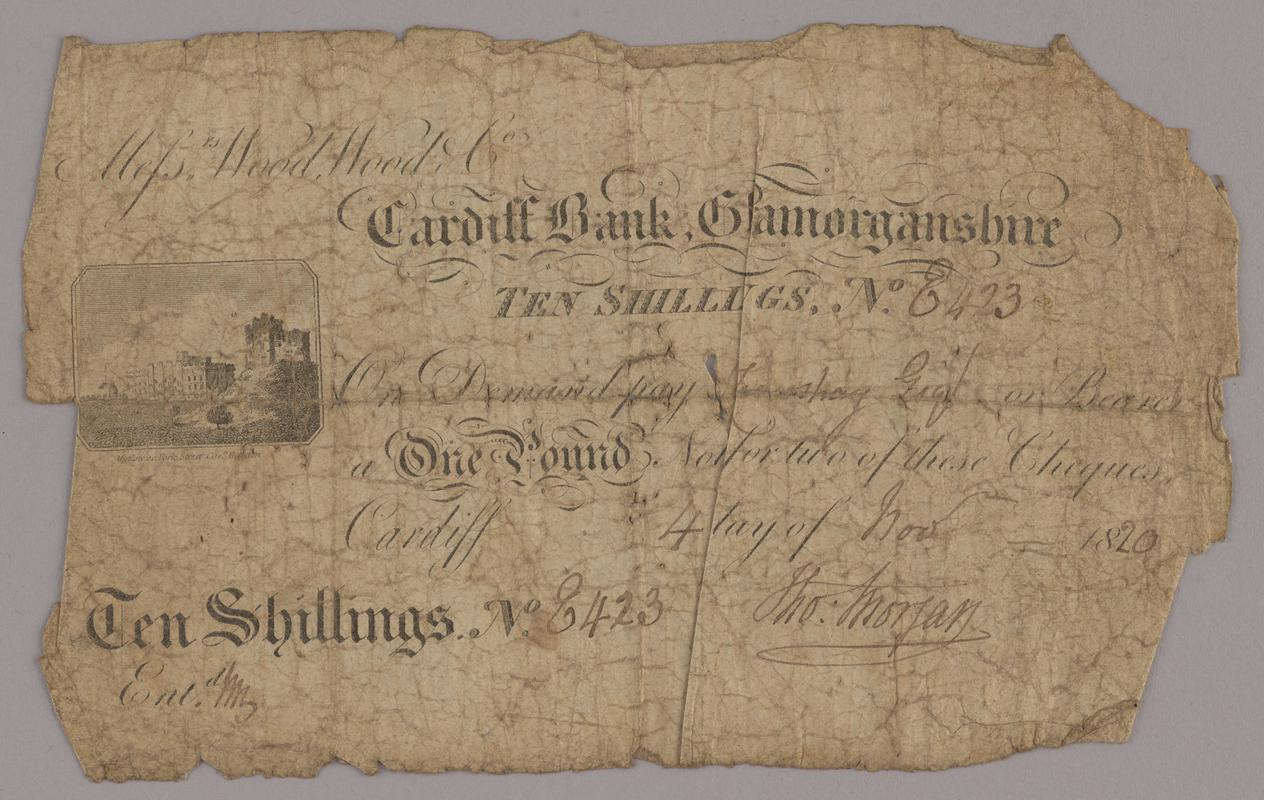 Messrs. Wood, Wood & Co.
Cardiff Bank, Glamorganshire
TEN SHILLINGS, No. E423
On Demand pay or Bearer
a One Pound Note for two of these Cheques.
Cardiff 4 day of Nov 1820
Ten Shillings. No. E423
Tho: Morgan
Entd.